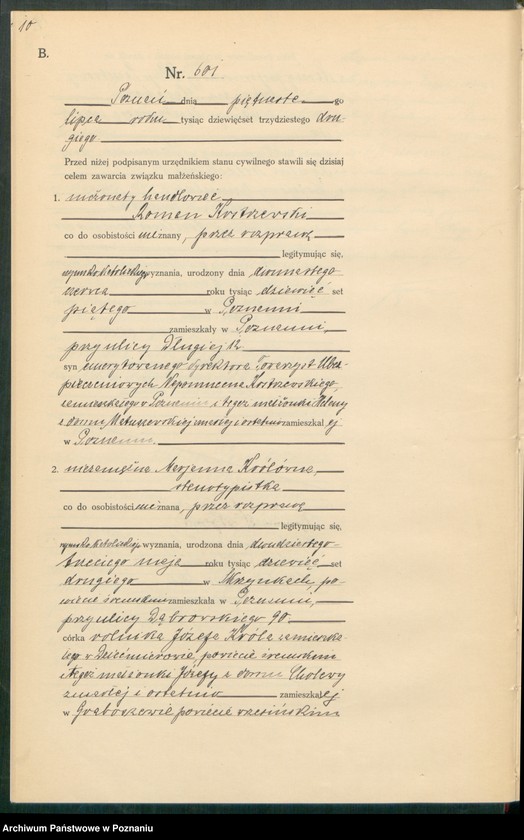 10
B.
Nr. 601
Poznań dnia piętnaste go
lipca roku tysiąc dziewięćset trzydziestego dru-
giego
Przed niżej podpisanym urzędnikiem stanu cywilnego stawili się dzisiaj
celem zawarcia związku małżeńskiego:
1. nieżonaty handlowiec
Roman Kostrzewski
co do osobistości nieznany, przez rozprawę
legitymując się,
rzymsko katolickiego wyznania, urodzony dnia dwunastego
czerwca roku tysiąc dziewięć set
piątego w Poznaniu
zamieszkały w Poznaniu,
przy ulicy Długiej 12
syn emerytowanego dyrektora Towarzyst Ubez-
pieczeniowych Nepomucena Kostrzewskiego,
zamieszkałego w Poznaniu i tegoż małżonki Heleny
z domu zmarłej i ostatnio zamieszkał ej
w Poznaniu.
2. niezamężna Marjanna Królówna,
stenotypistka
co do osobistości nieznana, przez rozprawę
legitymując się,
rzymsko katolickiego wyznania, urodzona dnia dwudziestego
trzeciego maja roku tysiąc dziewięć set
drugiego w po-
wiecie śremskim zamieszkała w Poznaniu,
przy ulicy Dąbrowskiego 90
córka rolnika Józefa Króla zamieszka-
łego w powiecie śremskim
i tegoż małżonki Józefy z domu Cholewy
zmarłej i ostatnio zamieszkał ej
w Graboszewie powiecie wrzesińskim
Archiwum Państwowe w Poznaniu